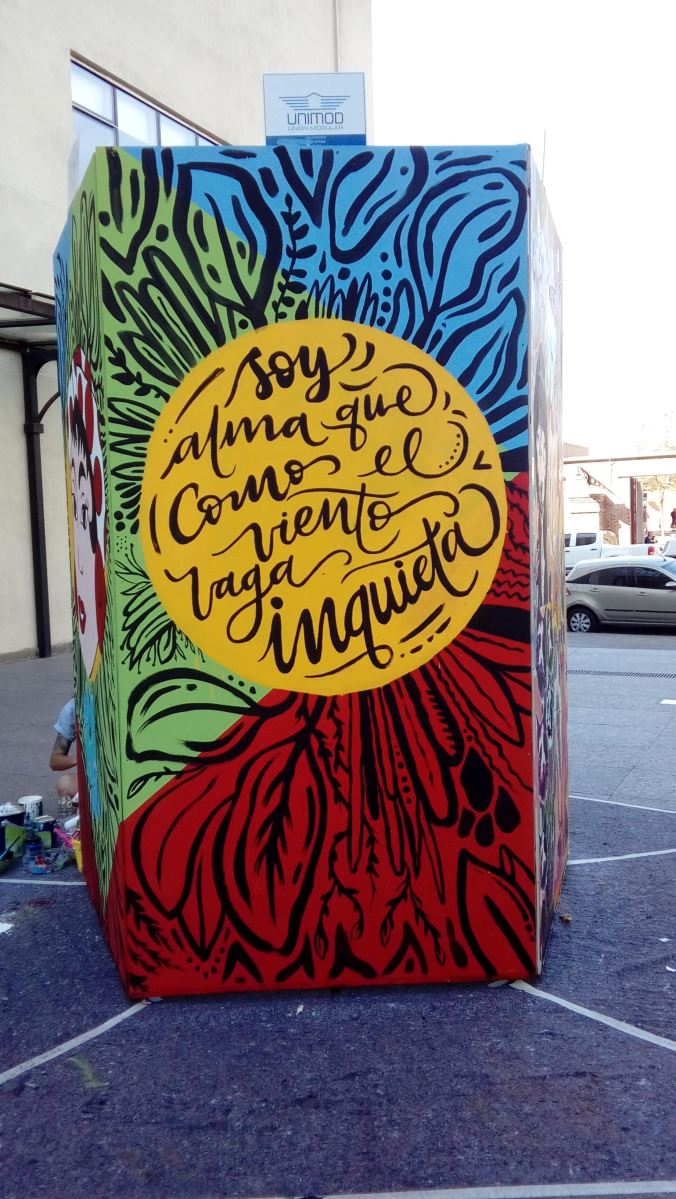 UNIMOD
UNION MODULAR
soy
alma que
como el
viento
vaga
inquieta